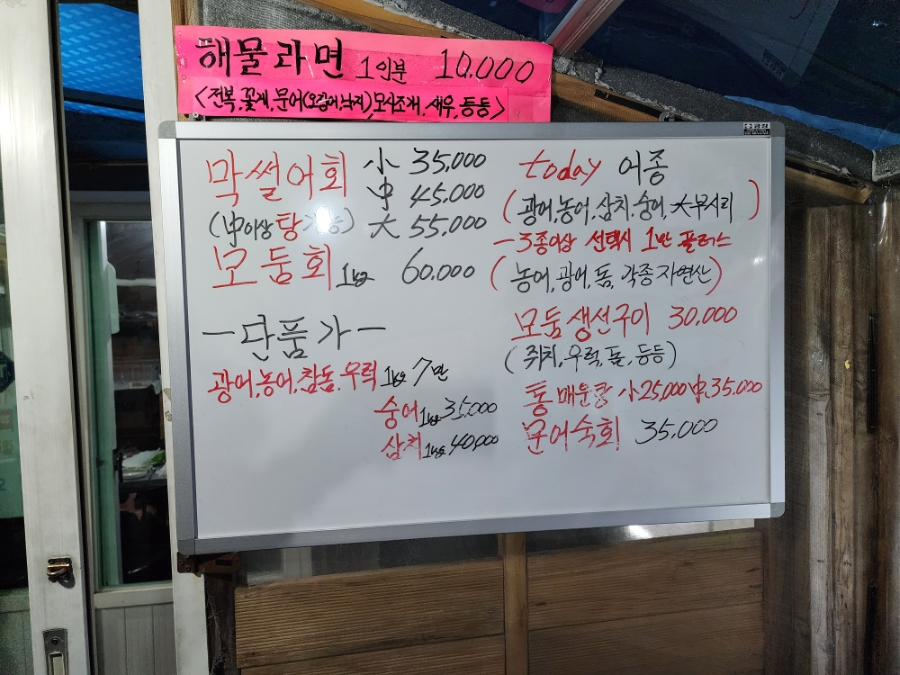 해물라면 1인분 10,000
<전복, 꽃게, 문어(오징어,낙지), 모시조개, 새우, 등등>
막썰어회 小 35,000
中 45,000
(中이상 탕가능) 大 55,000
모둠회 1kg 60,000
-단품가-
광어,농어,참돔,우럭 1kg 7만
숭어 1kg 35,000
삼치 1kg 40,000
today 어종
(광어,농어,삼치,숭어,大부시리)
-3종이상 선택시 1만 플러스
(농어,광어,돔,각종자연산)
모둠생선구이 30,000
(쥐치,우럭,돔,등등)
통매운탕 小25,000 中35,000
문어숙회 35,000